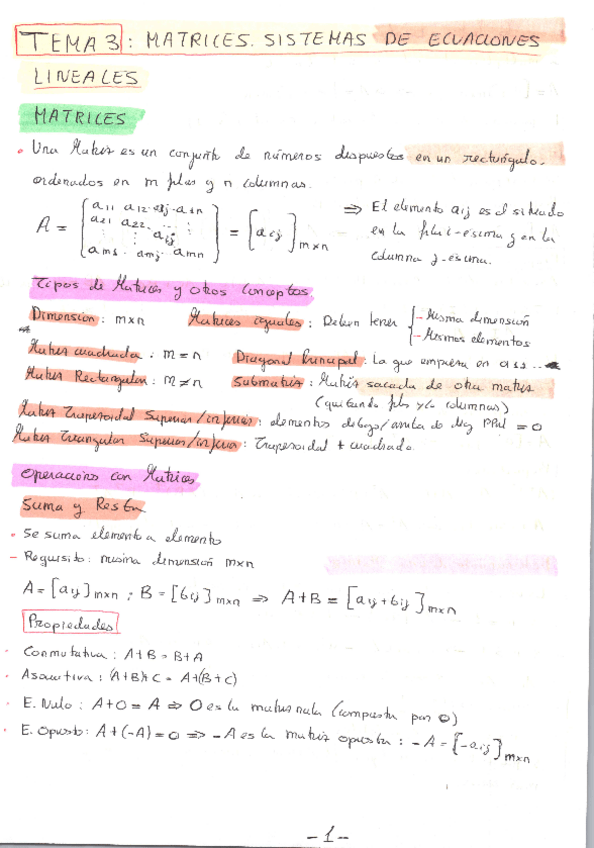 TEMA 3: MATRICES. SISTEMAS DE ECUACIONES
LINEALES
MATRICES
• Una Matriz es un conjunto de números dispuestos en un rectángulo.
ordenados en m filas y n columnas.
A = [a11 a12 ... a1j ... a1n
a21 a22 ...
... aij ...
am1 ... amj ... amn] = [aij]m×n
⇒ El elemento aij es el situado
en la fila i-esima y en la
columna j-esima.
Tipos de Matrices y otros conceptos.
Dimension: m×n Matrices iguales: Deben tener { - Misma dimensión
- Mismos elementos
Matriz cuadrada: m=n Diagonal Principal: La que empieza en a11...
Matriz Rectangular: m≠n Submatriz: Matriz sacada de otra matriz
(quitando filas y/o columnas)
Matriz Trapezoidal Superior/inferior: elementos debajo/arriba de diag PPal = 0
Matriz Triangular Superior/inferior: Trapezoidal + cuadrada.
Operaciones con Matrices
Suma y Resta
• Se suma elemento a elemento
- Requisito: misma dimensión m×n
A = [aij]m×n ; B = [bij]m×n ⇒ A+B = [aij+bij]m×n
Propiedades
· Conmutativa: A+B = B+A
· Asociativa: (A+B)+C = A+(B+C)
· E. Nulo: A+0 = A ⇒ 0 es la matriz nula (compuesta por 0)
· E. Opuesto: A+(-A)=0 ⇒ -A es la matriz opuesta: -A = [-aij]m×n
-1-